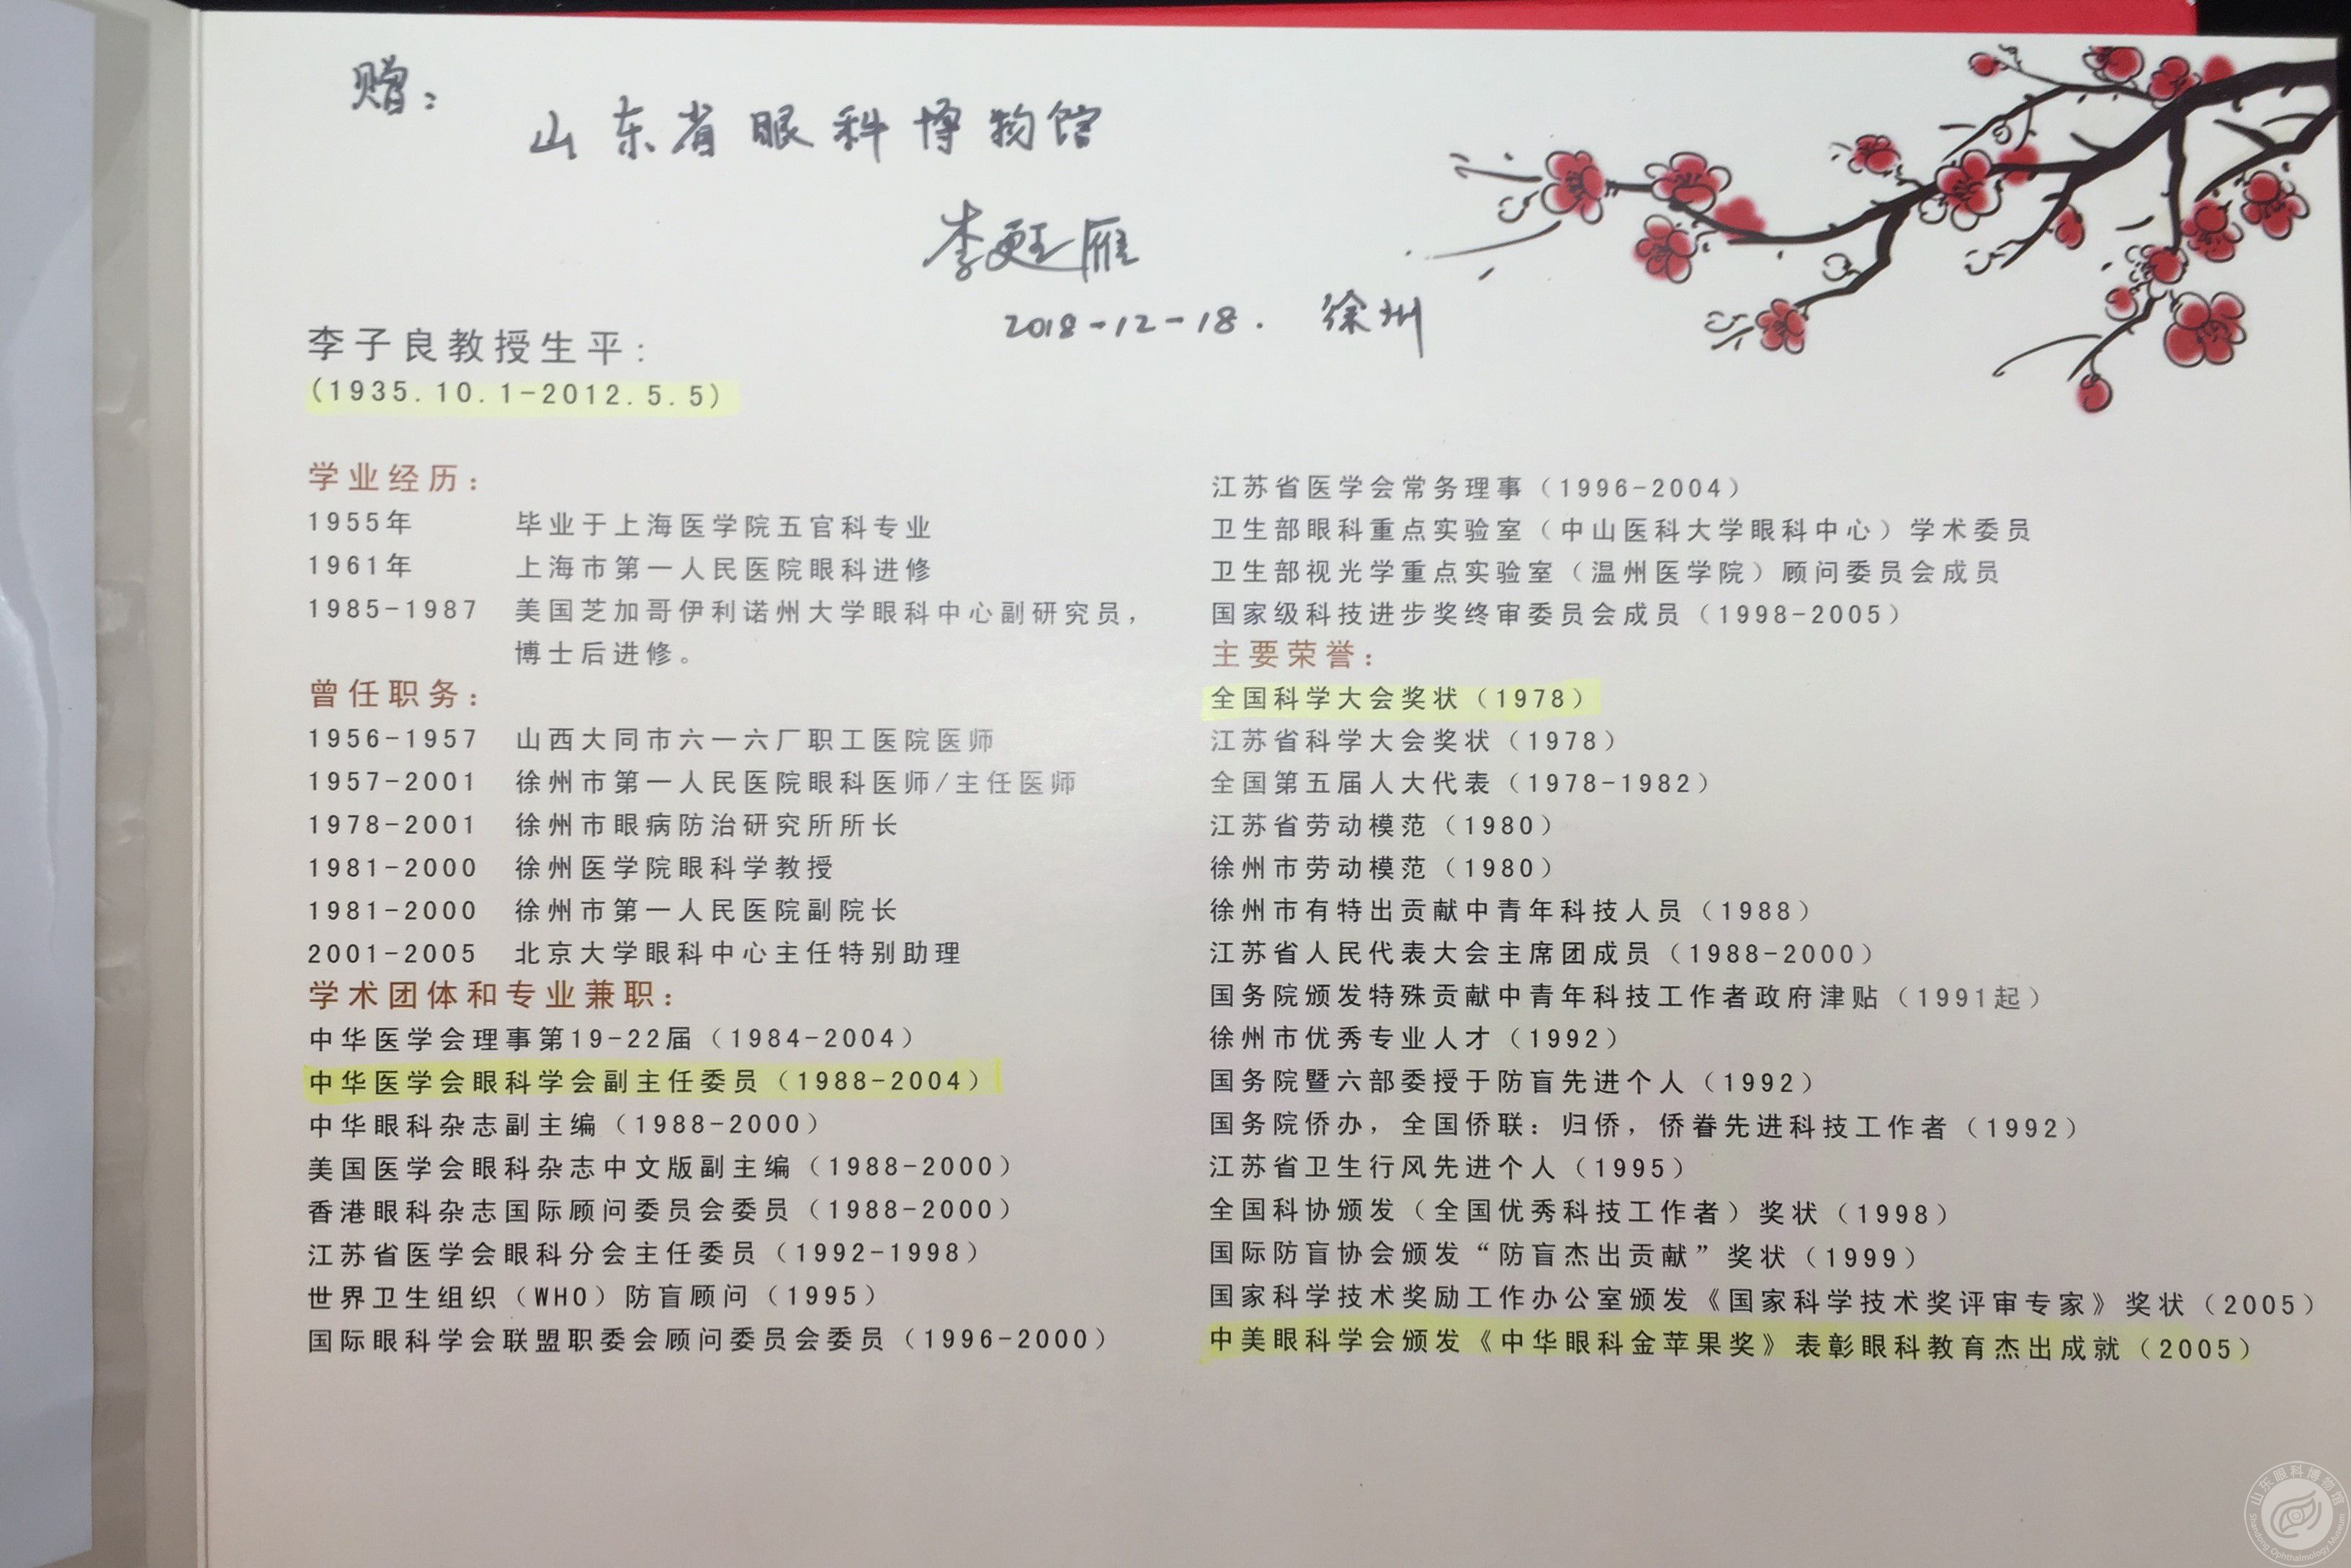 赠：
山东省眼科博物馆
李
2018-12-18. 徐州
李子良教授生平：
(1935.10.1-2012.5.5)
学业经历：
1955年 毕业于上海医学院五官科专业
1961年 上海市第一人民医院眼科进修
1985-1987 美国芝加哥伊利诺州大学眼科中心副研究员，
博士后进修。
曾任职务：
1956-1957 山西大同市六一六厂职工医院医师
1957-2001 徐州市第一人民医院眼科医师/主任医师
1978-2001 徐州市眼病防治研究所所长
1981-2000 徐州医学院眼科学教授
1981-2000 徐州市第一人民医院副院长
2001-2005 北京大学眼科中心主任特别助理
学术团体和专业兼职：
中华医学会理事第19-22届（1984-2004）
中华医学会眼科学会副主任委员（1988-2004）
中华眼科杂志副主编（1988-2000）
美国医学会眼科杂志中文版副主编（1988-2000）
香港眼科杂志国际顾问委员会委员（1988-2000）
江苏省医学会眼科分会主任委员（1992-1998）
世界卫生组织（WHO）防盲顾问（1995）
国际眼科学会联盟职委会顾问委员会委员（1996-2000）
江苏省医学会常务理事（1996-2004）
卫生部眼科重点实验室（中山医科大学眼科中心）学术委员
卫生部视光学重点实验室（温州医学院）顾问委员会成员
国家级科技进步奖终审委员会成员（1998-2005）
主要荣誉：
全国科学大会奖状（1978）
江苏省科学大会奖状（1978）
全国第五届人大代表（1978-1982）
江苏省劳动模范（1980）
徐州市劳动模范（1980）
徐州市有特出贡献中青年科技人员（1988）
江苏省人民代表大会主席团成员（1988-2000）
国务院颁发特殊贡献中青年科技工作者政府津贴（1991起）
徐州市优秀专业人才（1992）
国务院暨六部委授于防盲先进个人（1992）
国务院侨办，全国侨联：归侨，侨眷先进科技工作者（1992）
江苏省卫生行风先进个人（1995）
全国科协颁发（全国优秀科技工作者）奖状（1998）
国际防盲协会颁发“防盲杰出贡献”奖状（1999）
国家科学技术奖励工作办公室颁发《国家科学技术奖评审专家》奖状（2005）
中美眼科学会颁发《中华眼科金苹果奖》表彰眼科教育杰出成就（2005）
山东眼科博物馆
Shandong Ophthalmology Museum